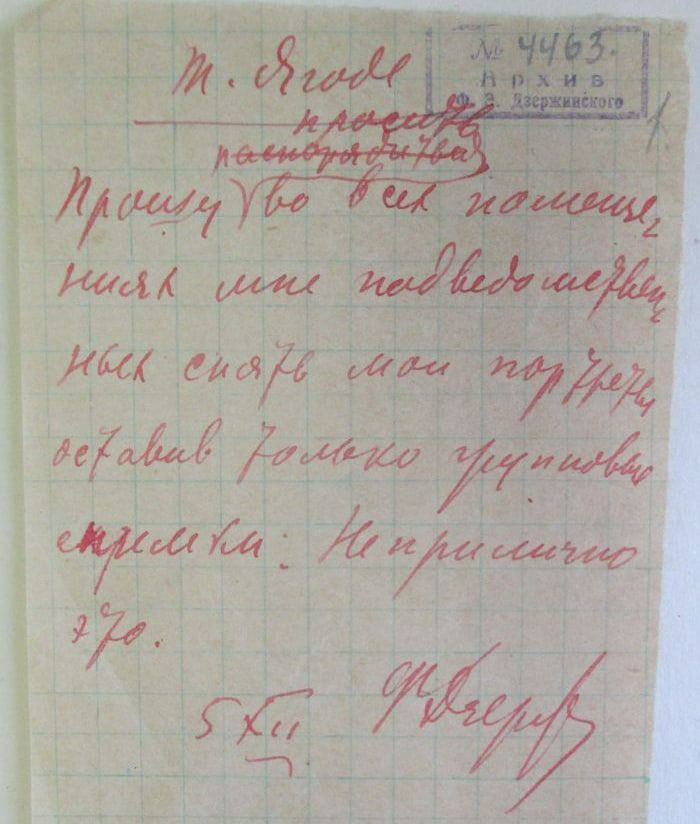 № 4463.
Архив
Ф. Э. Дзержинского
Т. Ягоде
просить
распорядиться
Прошу во всех помеще-
ниях мне подведомствен-
ных снять мои портреты
оставив только групповые
снимки. Неприлично
это.
5 XII ФДзерж